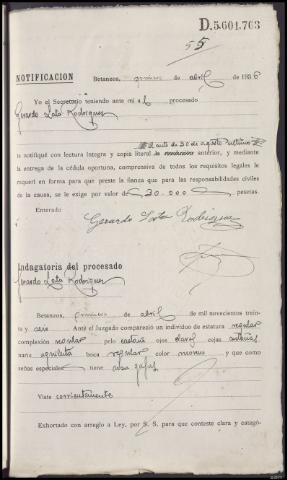 D.5.601.763
55
NOTIFICACION Betanzos, quince de abril de 1936
Yo el Secretario teniendo ante mi al procesado
Gerardo Lata Rodriguez
el auto de 30 de agosto último
le notifiqué con lectura íntegra y copia literal la resolucion anterior, y mediante
la entrega de la cédula oportuna, comprensiva de todos los requisitos legales le
requerí en forma para que preste la fianza que para las responsabilidades civiles
de la causa, se le exige por valor de 30.000 pesetas.
Enterado
Gerardo Lata Rodriguez
Indagatoria del procesado
Gerardo Lata Rodriguez
Betanzos, quince de abril de mil novecientos trein-
ta y seis Ante el Juzgado compareció un individuo de estatura regular
complexión regular pelo castaño ojos claros cejas castañas
nariz aguileña boca regular color moreno y que como
señas especiales tiene usa gafas
Viste corrientemente
Exhortado con arreglo a Ley, por S. S. para que conteste clara y categó-